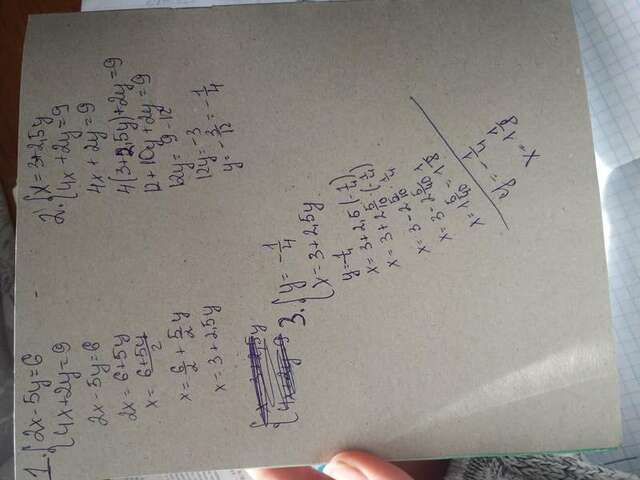 1. {2x - 5y = 6
4x + 2y = 9
2x - 5y = 6
2x = 6 + 5y
x = (6+5y)/2
x = 6/2 + 5/2 y
x = 3 + 2,5y
2. {x = 3 + 2,5y
4x + 2y = 9
4x + 2y = 9
4(3 + 2,5y) + 2y = 9
12 + 10y + 2y = 9
12y = 9 - 12
12y = -3
y = -3/12 = -1/4
3. {y = -1/4
x = 3 + 2,5y
y = -1/4
x = 3 + 2,5 (-1/4)
x = 3 + 2 5/10 · (-1/4)
x = 3 - 2 5/10 · 1/4
x = 3 - 2 5/40
x = 1 5/40 = 1 1/8
y = -1/4
x = 1 1/8